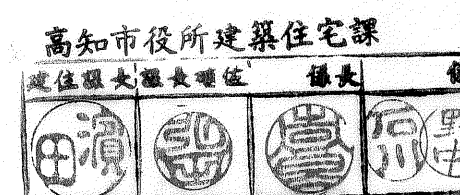 高知市役所建築住宅課
建住課長 課長補佐 係長 係
濱田 岡 石川 野中